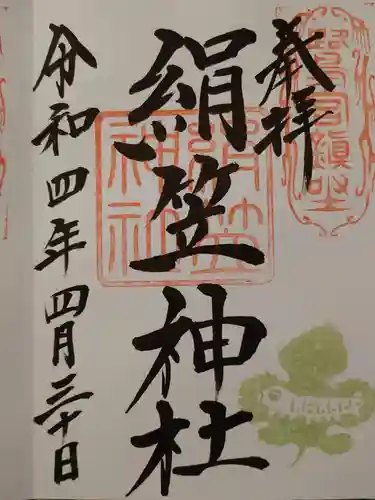 奉拝
絹笠神社
令和四年四月三十日
絹笠
神社